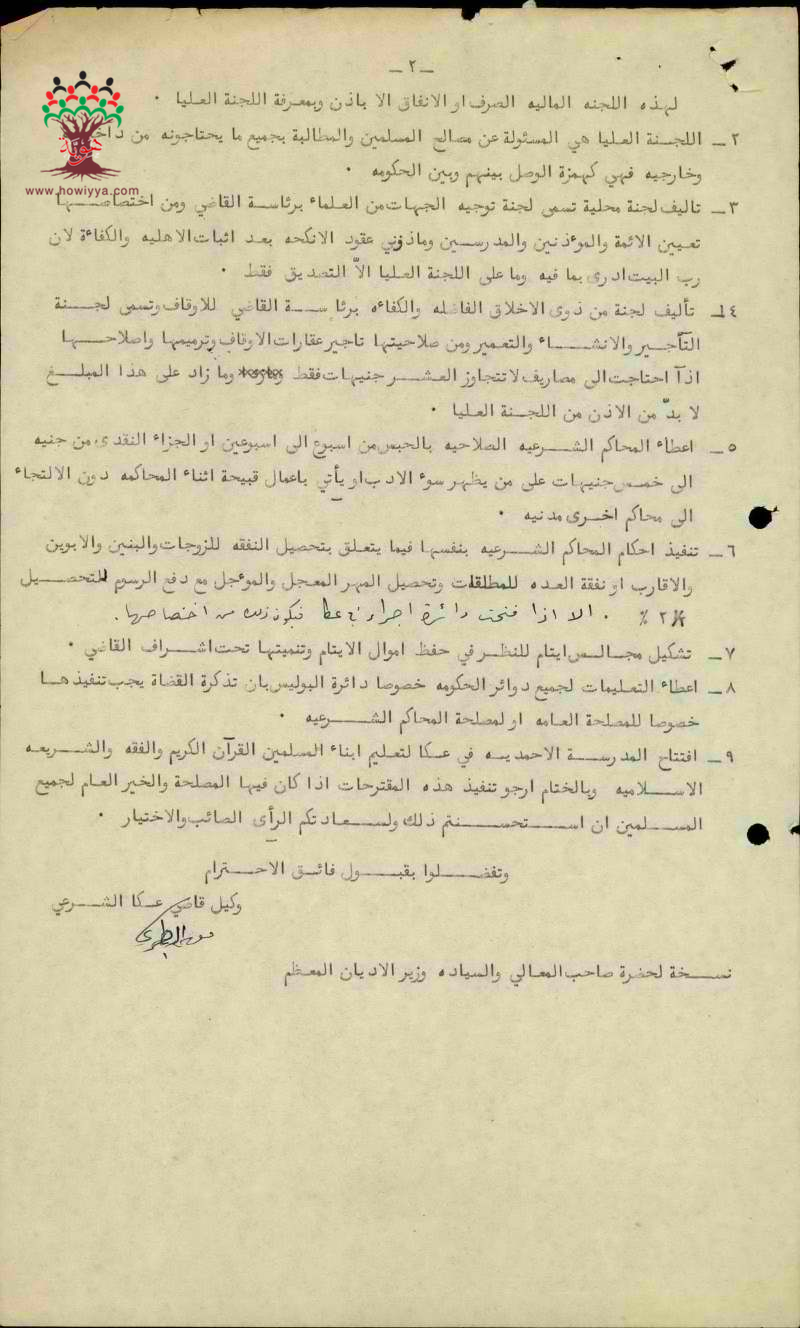 هوية
www.howiyya.com
ـ ٢ ـ
لهذه اللجنه الماليه الصرف او الانفاق الا باذن وبمعرفة اللجنة العليا ٠
٢ ـ اللجنة العليا هي المسئولة عن مصالح المسلمين والمطالبة بجميع ما يحتاجونه من
وخارجيه فهي كهمزة الوصل بينهم وبين الحكومه ٠
٣ ـ تاليف لجنة محلية تسمى لجنة توجيه الجهات من العلماء برئاسة القاضي ومن اختصاصها
تعيين الائمة والموءذنين والمدرسين وماذوني عقود الانكحه بعد اثبات الاهليه والكفاءة لان
رب البيت ادرى بما فيه وما على اللجنة العليا الاّ التصديق فقط ٠
٤ ـ تأليف لجنة من ذوى الاخلاق الفاضله والكفاءه برئاسة القاضي للاوقاف وتسمى لجنة
التآجير والانشاء والتعمير ومن صلاحيتها تاجير عقارات الاوقاف وترميمها واصلاحها
اذآ احتاجت الى مصاريف لا تتجاوز العشر جنيهات فقط وما زاد على هذا المبلغ
لا بدّ من الاذن من اللجنة العليا ٠
٥ ـ اعطاء المحاكم الشرعيه الصلاحيه بالحبس من اسبوع الى اسبوعين او الجزاء النقدى من جنيه
الى خمس جنيهات على من يظهر سوء الادب او يأتي باعمال قبيحة اثناء المحاكمه دون الالتجاء
الى محاكم اخرى مدنيه ٠
٦ ـ تنفيذ احكام المحاكم الشرعيه بنفسها فيما يتعلق بتحصيل النفقه للزوجات والبنين والابوين
والاقارب او نفقة العده للمطلقات وتحصيل المهر المعجل والموءجل مع دفع الرسوم للتحصيل
٢ ٪ ٠ الا اذا فتحت دائرة اجراء في عكا فيكون ذلك من اختصاصها.
٧ ـ تشكيل مجالس ايتام للنظر في حفظ اموال الايتام وتنميتها تحت اشراف القاضي ٠
٨ ـ اعطاء التعليمات لجميع دوائر الحكومه خصوصا دائرة البوليس بان تذكرة القضاة يجب تنفيذها
خصوصا للمصلحة العامه او لمصلحة المحاكم الشرعيه ٠
٩ ـ افتتاح المدرسة الاحمديه في عكا لتعليم ابناء المسلمين القرآن الكريم والفقه والشريعه
الاسلاميه وبالختام ارجو تنفيذ هذه المقترحات اذا كان فيها المصلحة والخير العام لجميع
المسلمين ان استحسنتم ذلك ولسعادتكم الرأى الصائب والاختيار ٠
وتفضلوا بقبول فائق الاحترام
وكيل قاضي عكا الشرعي
الطبري
نسخة لحضرة صاحب المعالي والسياده وزير الاديان المعظم